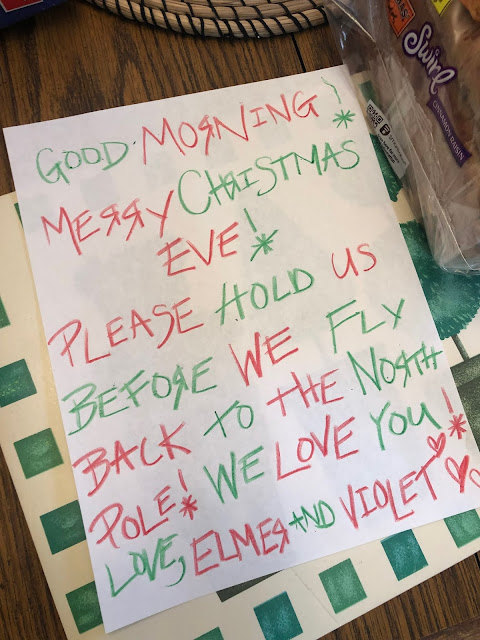 GOOD MORNING!
MERRY CHRISTMAS
EVE!
PLEASE HOLD US
BEFORE WE FLY
BACK TO THE NORTH
POLE! WE LOVE YOU!
LOVE, ELMER AND VIOLET
Swirl
CINNAMON RAISIN